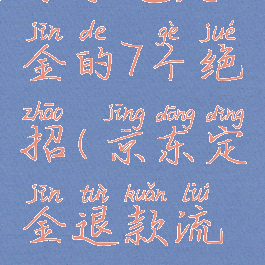 jīn de gè jué
金的7个绝
zhāo jīng dōng dìng
招(京东定
jīn tuì kuǎn liú
金退款流